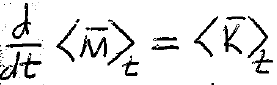 d/dt ⟨M̄⟩_t = ⟨K̄⟩_t